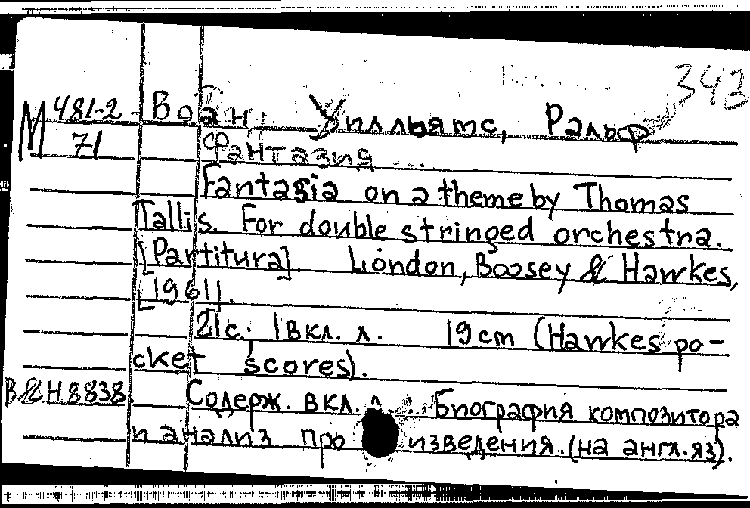 343
М 481-2 Воан Уилльямс, Ральф
71 Фантазия ...
Fantasia on a theme by Thomas
Tallis. For double stringed orchestra.
[Partitura]. London, Boosey & Hawkes,
[1961].
21 с., 1 вкл. л. 19 cm (Hawkes po-
cket scores).
B&H.8838. Содерж. вкл. л.: Биография композитора
и анализ произведения. (на англ. яз).